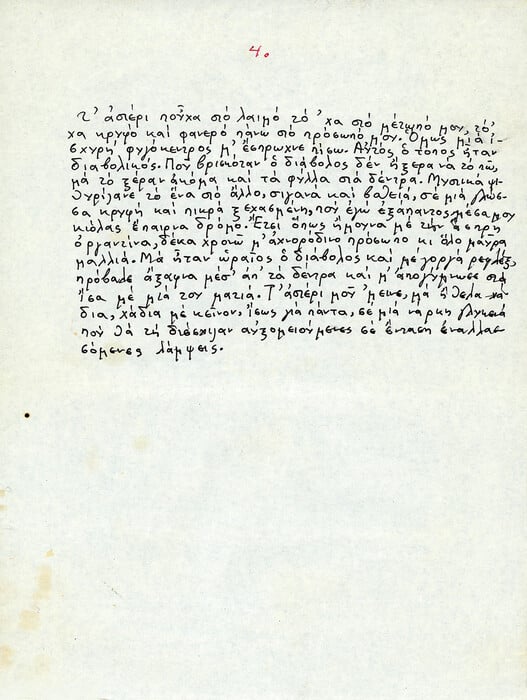 4.
Τ' ἀστέρι ποὖχα στό λαιμό τό 'χα στό μέτωπό μου, τό'
χα κρυφό καί φανερό πάνω στό πρόσωπό μου. Ὅμως μιά ἰ-
σχυρή φυγόκεντρος μ' ἔσπρωχνε πίσω. Αὐτός ὁ τόπος ἦταν
διαβολικός. Ποῦ βρισκόταν ὁ διάβολος δέν ἤξερα νά τό πῶ,
μά τό ξέραν ἀκόμα καί τά φύλλα στά δέντρα. Μυστικά ψι-
θυρίζανε τό ἕνα στό ἄλλο, σιγανά καί βαθειά, σέ μιά γλώσ-
σα κρυφή καί πικρά ξεχασμένη, πού ἐγώ ἐξάπαντος μέσα μου
κιόλας ἔπαιρνα δρόμο. Ἔτσι ὅπως ἤμουνα μέ τήν ἄσπρη
ὀργαντίνα, δέκα χρονῶ μ' ἀχνορόδινο πρόσωπο κι ὅλο μαῦρα
μαλλιά. Μά ἦταν ὡραῖος ὁ διάβολος καί με γοργά ρεφλέξ,
πρόβαλε ἄξαφνα μέσ' ἀπ' τά δέντρα καί μ' ἀπογύμνωσε στά
ἴσα μέ μία του ματιά. Τ' ἀστέρι μοῦ 'μεινε, μά ἤθελα χά-
δια, χάδια μέ κεῖνον, ἴσως γιά πάντα, σέ μιά νάρκη γλυκειά
πού θά τή διέσχιζαν αὐξομειούμενες σέ ἔνταση ἐναλλασ-
σόμενες λάμψεις.